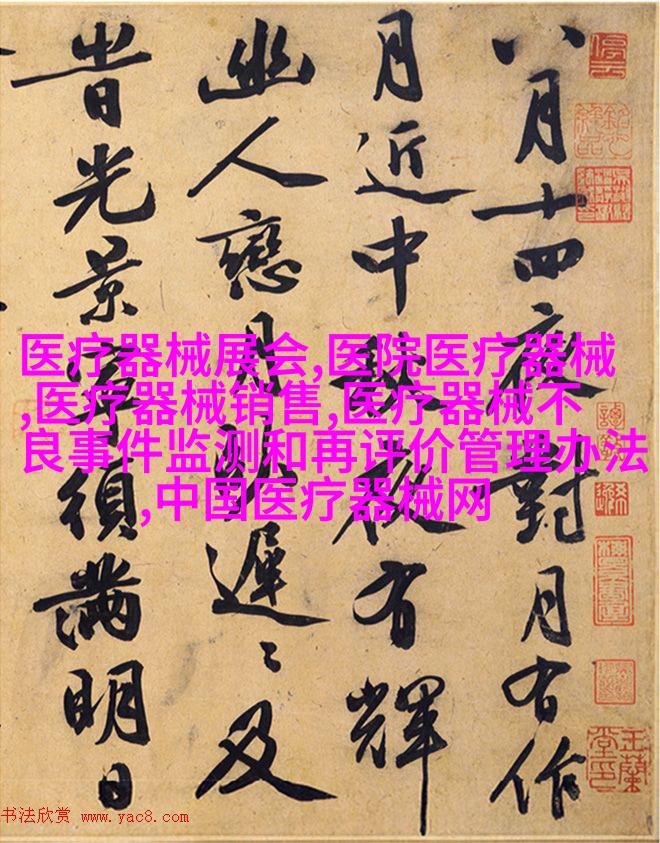 八月十四夜對月有作
月近中秋夜有輝
幽人戀月眠遲〻及
旹光景寧須滿明日
医疗器械展会,医院医疗器械
,医疗器械销售,医疗器械不
良事件监测和再评价管理办法
,中国医疗器械网
停雲
玉蘭堂印
书法欣赏 www.yac8.com